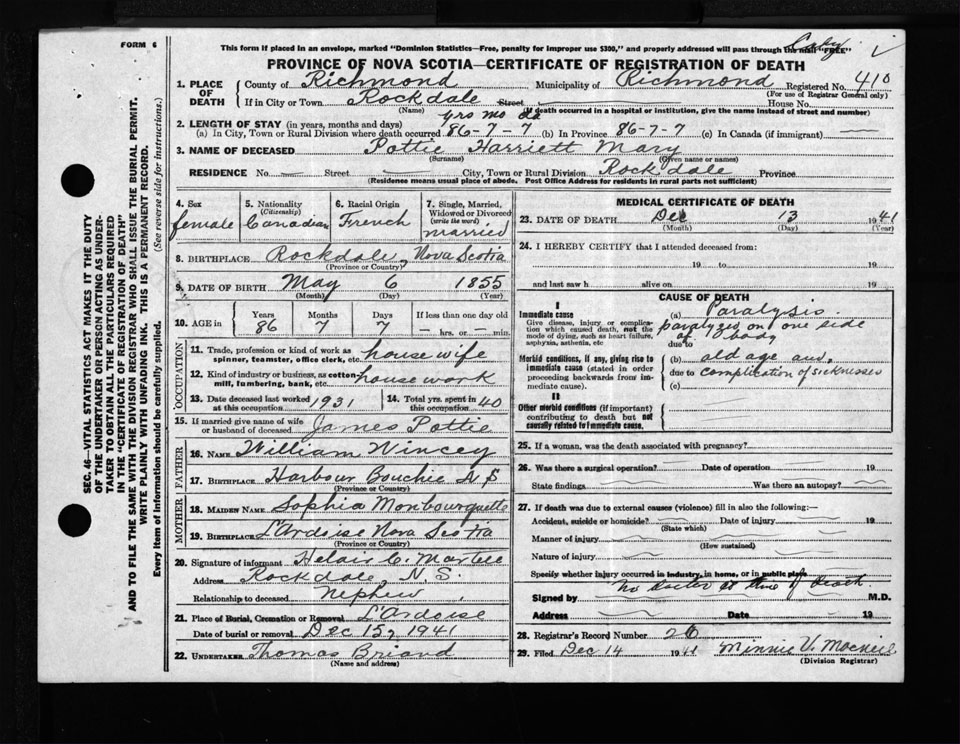 FORM 6
This form if placed in an envelope, marked "Dominion Statistics—Free, penalty for improper use $300," and properly addressed will pass through the mail "FREE"
PROVINCE OF NOVA SCOTIA—CERTIFICATE OF REGISTRATION OF DEATH
1. PLACE OF DEATH County of Richmond Municipality of Richmond Registered No. 410
(For use of Registrar General only)
If in City or Town Rockdale Street House No.
(Name) (If death occurred in a hospital or institution, give the name instead of street and number)
yrs mo ds
2. LENGTH OF STAY (in years, months and days)
(a) In City, Town or Rural Division where death occurred 86-7-7 (b) In Province 86-7-7 (c) In Canada (if immigrant)
3. NAME OF DECEASED Pottie Harriett Mary
(Surname) (Given name or names)
RESIDENCE No. Street City, Town or Rural Division Rockdale Province
(Residence means usual place of abode. Post Office Address for residents in rural parts not sufficient)
4. Sex female
5. Nationality (Citizenship) Canadian
6. Racial Origin French
7. Single, Married, Widowed or Divorced (write the word) married
8. BIRTHPLACE Rockdale, Nova Scotia
(Province or Country)
9. DATE OF BIRTH May 6 1855
(Month) (Day) (Year)
10. AGE in Years 86 Months 7 Days 7 If less than one day old — hrs. or — min.
OCCUPATION
11. Trade, profession or kind of work as spinner, teamster, office clerk, etc. house wife
12. Kind of industry or business, as cotton-mill, lumbering, bank, etc. house work
13. Date deceased last worked at this occupation 1931
14. Total yrs. spent in this occupation 40
15. If married give name of wife or husband of deceased James Pottie
FATHER
16. NAME William Wincey
17. BIRTHPLACE Harbour Bouchie N S
(Province or Country)
MOTHER
18. MAIDEN NAME Sophia Monbourquette
19. BIRTHPLACE L'Ardoise Nova Scotia
(Province or Country)
20. Signature of informant Martell
Address Rockdale, N.S.
Relationship to deceased nephew
21. Place of Burial, Cremation or Removal L'Ardoise
Date of burial or removal Dec 15, 1941
22. UNDERTAKER Thomas Briand
(Name and address)
MEDICAL CERTIFICATE OF DEATH
23. DATE OF DEATH Dec 13 1941
(Month) (Day) (Year)
24. I HEREBY CERTIFY that I attended deceased from:
19 to 19
and last saw h alive on 19
CAUSE OF DEATH
I
Immediate cause
Give disease, injury or complication which caused death, not the mode of dying, such as heart failure, asphyxia, asthenia, etc
(a) Paralysis
paralyzed on one side
due to of body
Morbid conditions, if any, giving rise to immediate cause (stated in order proceeding backwards from immediate cause)
(b) old age and
due to complication of sicknesses
(c)
II
Other morbid conditions (if important) contributing to death but not causally related to immediate cause.
25. If a woman, was the death associated with pregnancy?
26. Was there a surgical operation? Date of operation 19
State findings Was there an autopsy?
27. If death was due to external causes (violence) fill in also the following:—
Accident, suicide or homicide? Date of injury 19
(State which)
Manner of injury
(How sustained)
Nature of injury
Specify whether injury occurred in industry, in home, or in public place
no doctor at time of death
Signed by M.D.
Address Date 19
28. Registrar's Record Number 26
29. Filed Dec 14 1941 Minnie V. MacNeil
(Division Registrar)
SEC. 46—VITAL STATISTICS ACT MAKES IT THE DUTY
OF THE UNDERTAKER OR PERSON ACTING AS UNDER-
TAKER TO OBTAIN ALL THE PARTICULARS REQUIRED
IN THE "CERTIFICATE OF REGISTRATION OF DEATH"
AND TO FILE THE SAME WITH THE DIVISION REGISTRAR WHO SHALL ISSUE THE BURIAL PERMIT.
WRITE PLAINLY WITH UNFADING INK. THIS IS A PERMANENT RECORD.
Every item of information should be carefully supplied. (See reverse side for instructions.)